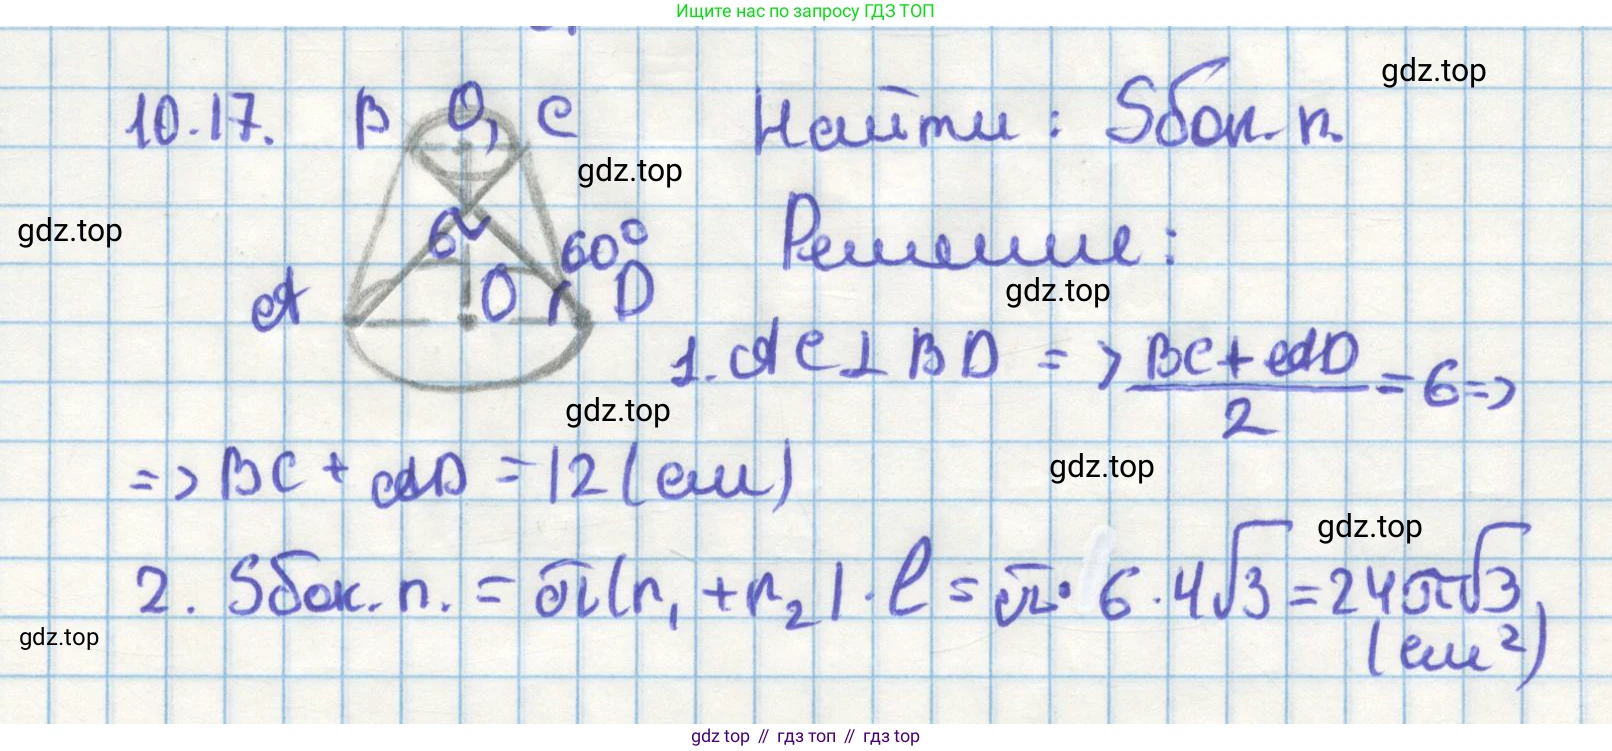 Ищите нас по запросу ГДЗ ТОП
gdz.top
10.17. B O₁ C Найти: Sбок. п.
gdz.top
gdz.top
6 60° Решение:
gdz.top
A O D
1. AC⊥BD => (BC+AD)/2 = 6 =>
gdz.top
=> BC + AD = 12 (см)
gdz.top
gdz.top
2. Sбок. п. = π(r₁ + r₂) · l = π · 6 · 4√3 = 24π√3
(см²)
gdz.top
gdz top // гдз топ // гдз top